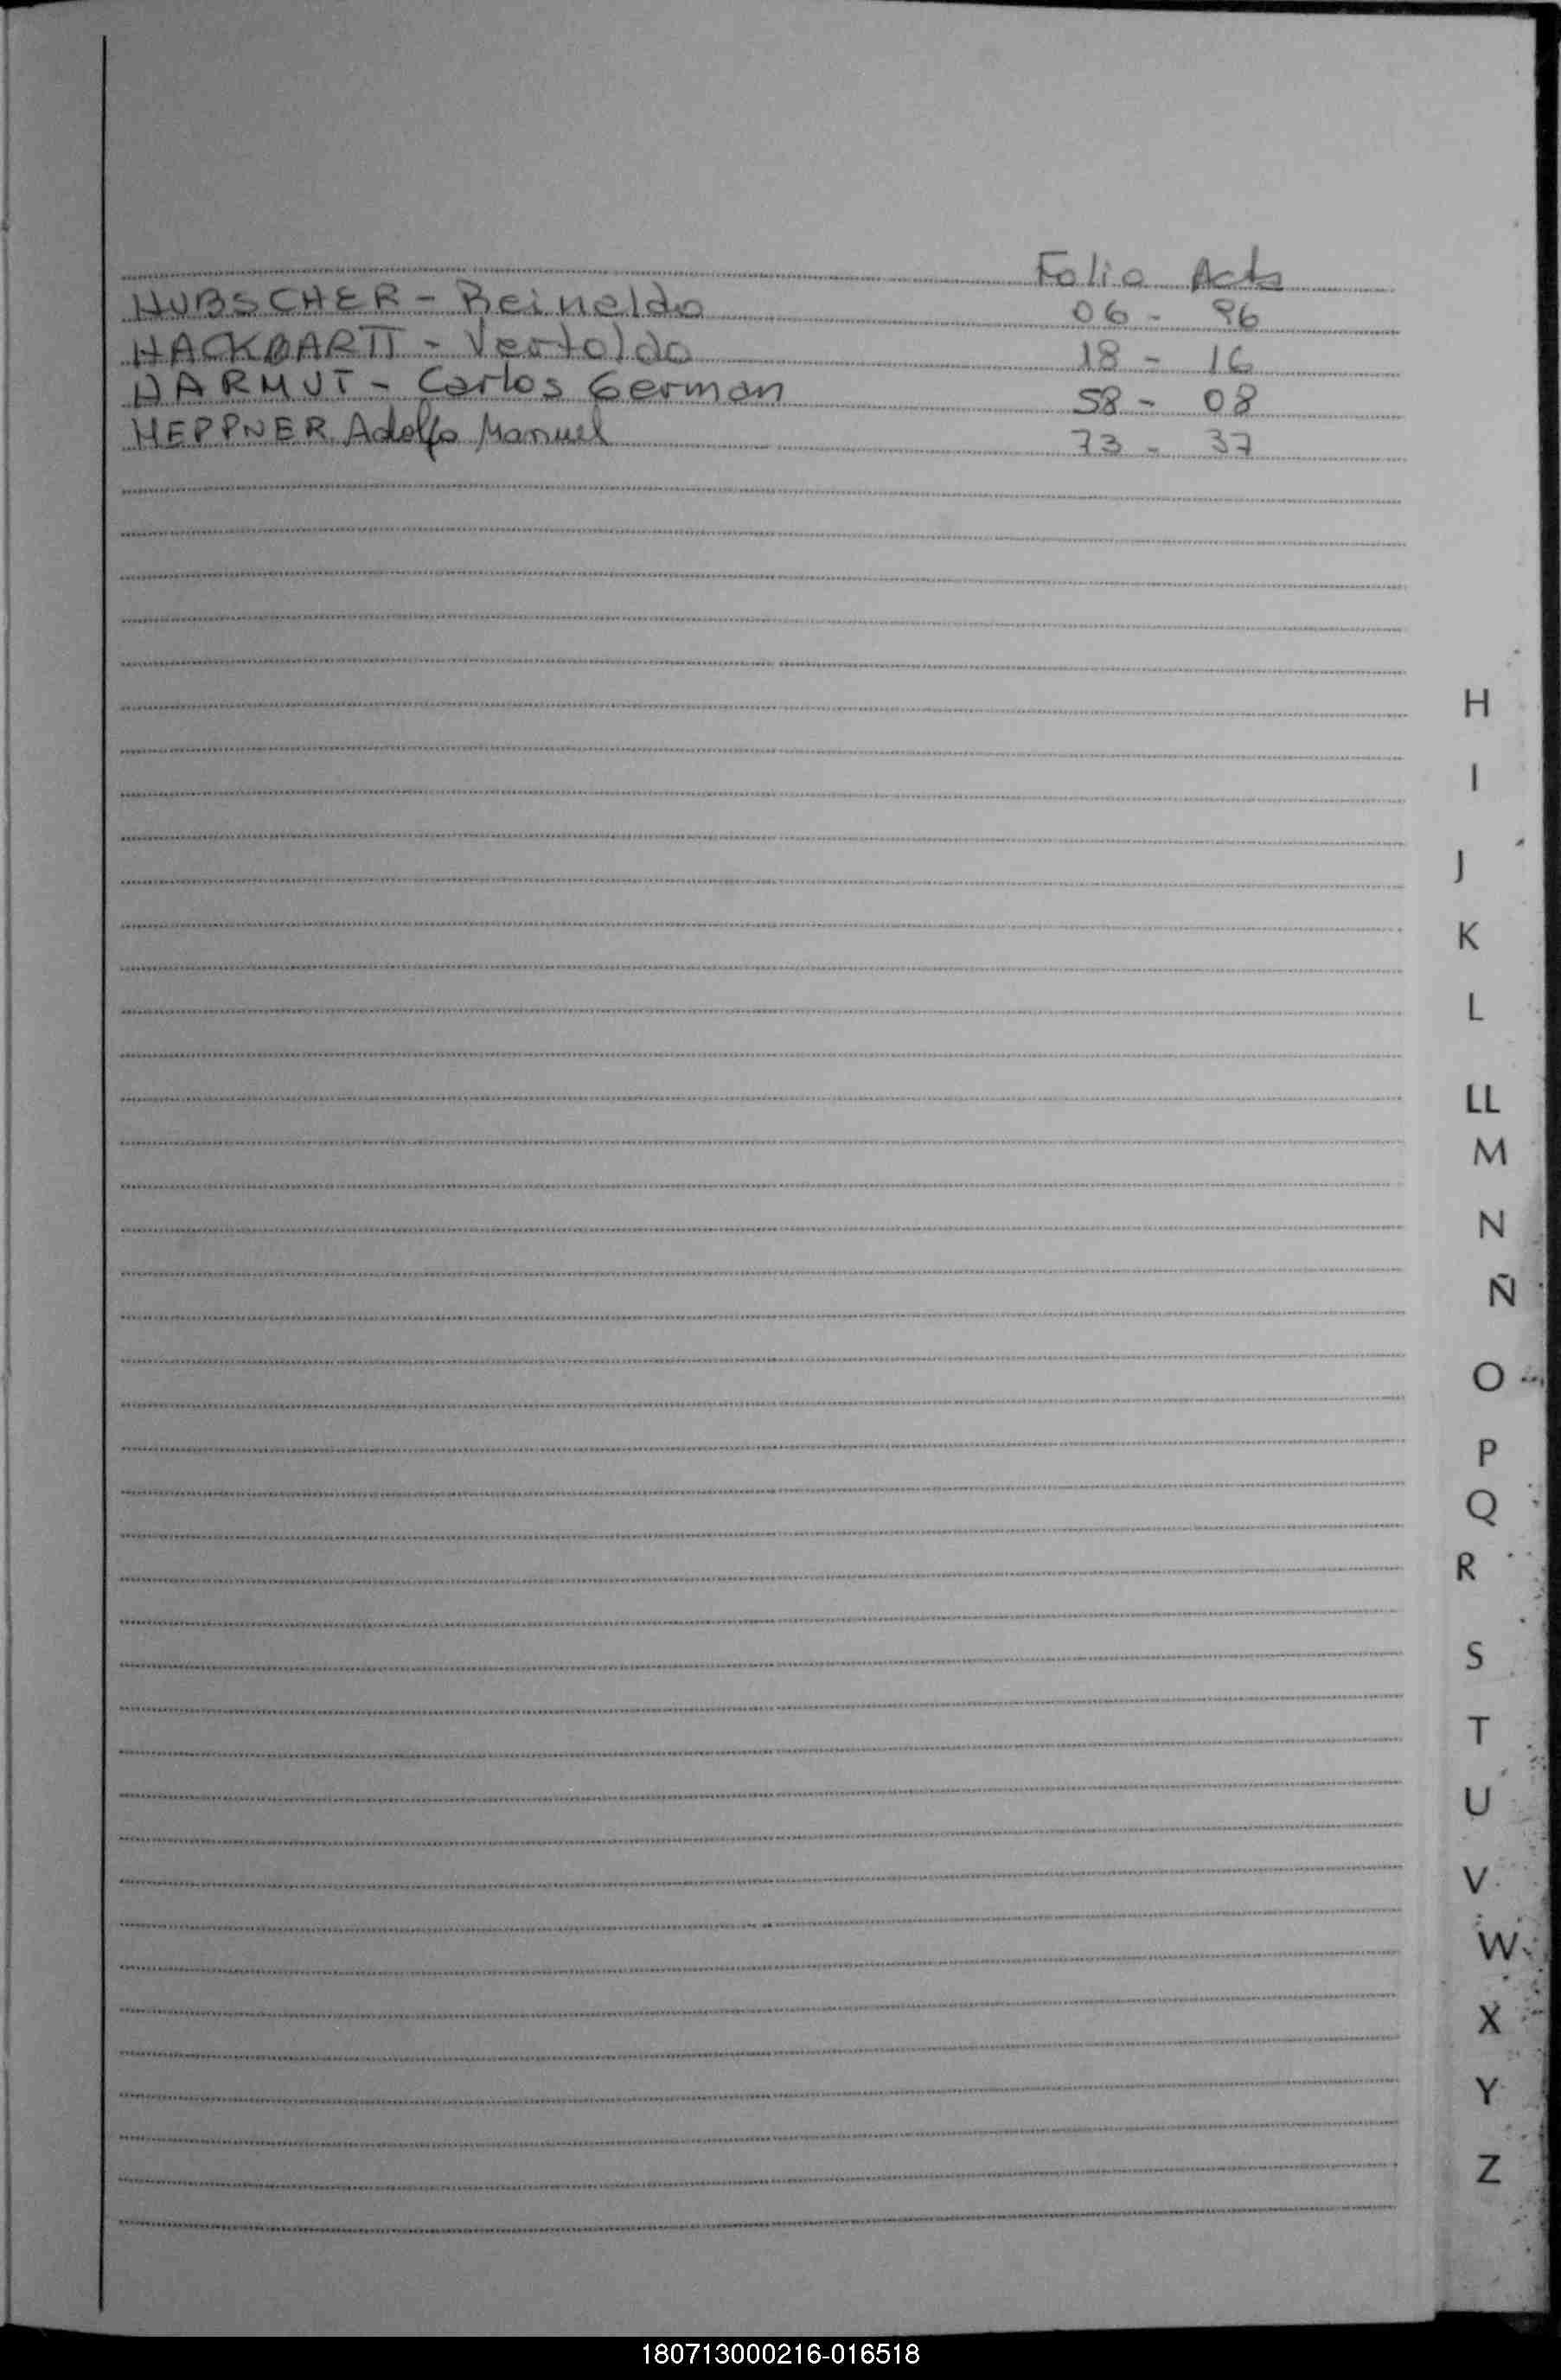 Folio Acta
HUBSCHER - Reineldo 06 - 96
HACKBARTT - Vertoldo 18 - 16
HARMUT - Carlos German 58 - 08
HEPPNER Adolfo Manuel 73 - 37
H
I
J
K
L
LL
M
N
Ñ
O
P
Q
R
S
T
U
V
W
X
Y
Z
180713000216-016518